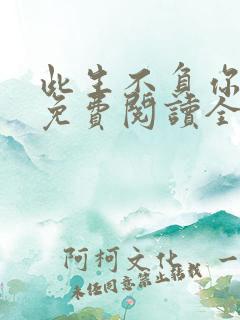 此生不負你
免費閱讀全
阿柯文化 一
未經同意禁止轉載